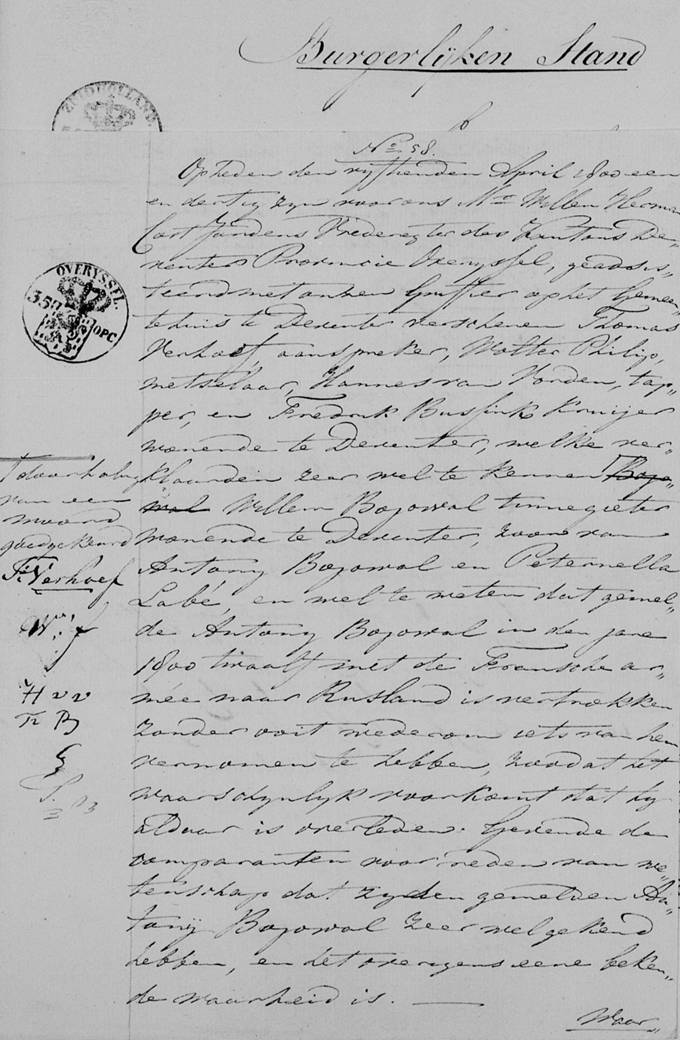 Burgerlijken Stand
ZUIDHOLLAND.
No 58.
Opheden den vyftienden April 1800 een
en dertig zyn voor ons Mr Willem Herman
Cost Jordens Vrederegter des Kantons De„
venter Provincie Overyssel, geadsis„
teerd met onzen Griffier op het Gemeen„
tehuis te Deventer verschenen Thomas
Verhoef aanspreker, Wolter Philip,
metselaar, Hannes van Vorden, tap„
per, en Fredrik Bussink Kruijer
wonende te Deventer, welke ver„
klaarden zeer wel te kennen Bojo„
wal Willem Bojowal tinnegieter
wonende te Deventer, zoon van
Antony Bojowal en Peternella
Labé, en wel te weten dat gemel„
de Antony Bojowal in den jare
1800 twaalf met de Fransche ar„
mee naar Rusland is vertrokken
zonder ooit wederom iets van hem
vernomen te hebben, zoodat het
waarschynlyk voorkomt dat hy
aldaar is overleden. Gevende de
comparanten voor reden van we„
tenschap dat zy den gemelden An„
tonij Bojowal zeer wel gekend
hebben, en het overigens eene beken„
de waarheid is.
Waar„
OVERYSSEL.
35
OPC
doorhaling
van een
woord
goedgekeurd
T: Verhoef
W:
H v v
B